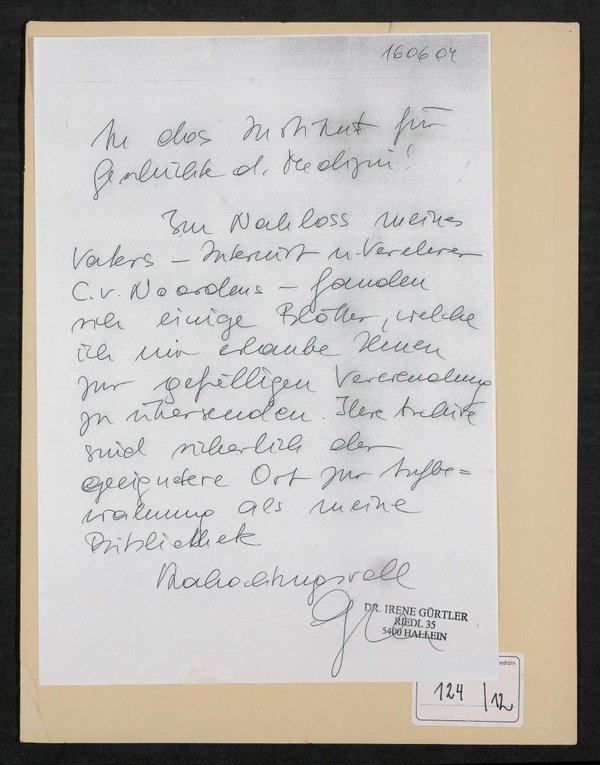 160604
An das Institut für
Geschichte d. Medizin!
Im Nachlass meines
Vaters – Internist u. Verehrer
C. v. Noordens – fanden
sich einige Blätter, welche
ich mir erlaube Ihnen
zur gefälligen Verwendung
zu übersenden. Ihre Archive
sind sicherlich der
geeignetere Ort zur Aufbe=
wahrung als meine
Bibliothek.
Hochachtungsvoll
DR. IRENE GÜRTLER
RIEDL 35
5400 HALLEIN
edizin
124/12